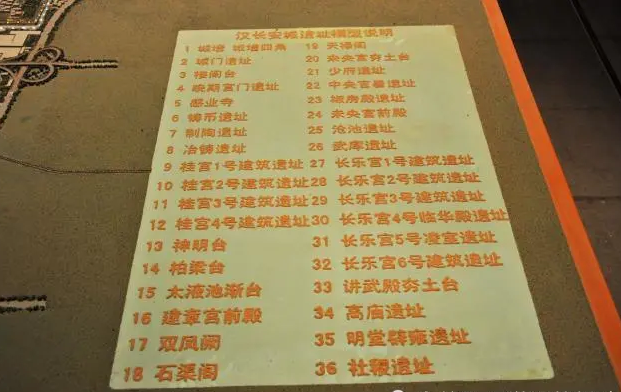 汉长安城遗址模型说明
1 城墙 城墙四角
2 城门遗址
3 楼阁台
4 晚期宫门遗址
5 感业寺
6 铸币遗址
7 制陶遗址
8 冶铸遗址
9 桂宫1号建筑遗址
10 桂宫2号建筑遗址
11 桂宫3号建筑遗址
12 桂宫4号建筑遗址
13 神明台
14 柏梁台
15 太液池渐台
16 建章宫前殿
17 双凤阙
18 石渠阁
19 天禄阁
20 未央宫夯土台
21 少府遗址
22 中央官署遗址
23 椒房殿遗址
24 未央宫前殿
25 沧池遗址
26 武库遗址
27 长乐宫1号建筑遗址
28 长乐宫2号建筑遗址
29 长乐宫3号建筑遗址
30 长乐宫4号临华殿遗址
31 长乐宫5号凌室遗址
32 长乐宫6号建筑遗址
33 讲武殿夯土台
34 高庙遗址
35 明堂辟雍遗址
36 社稷遗址